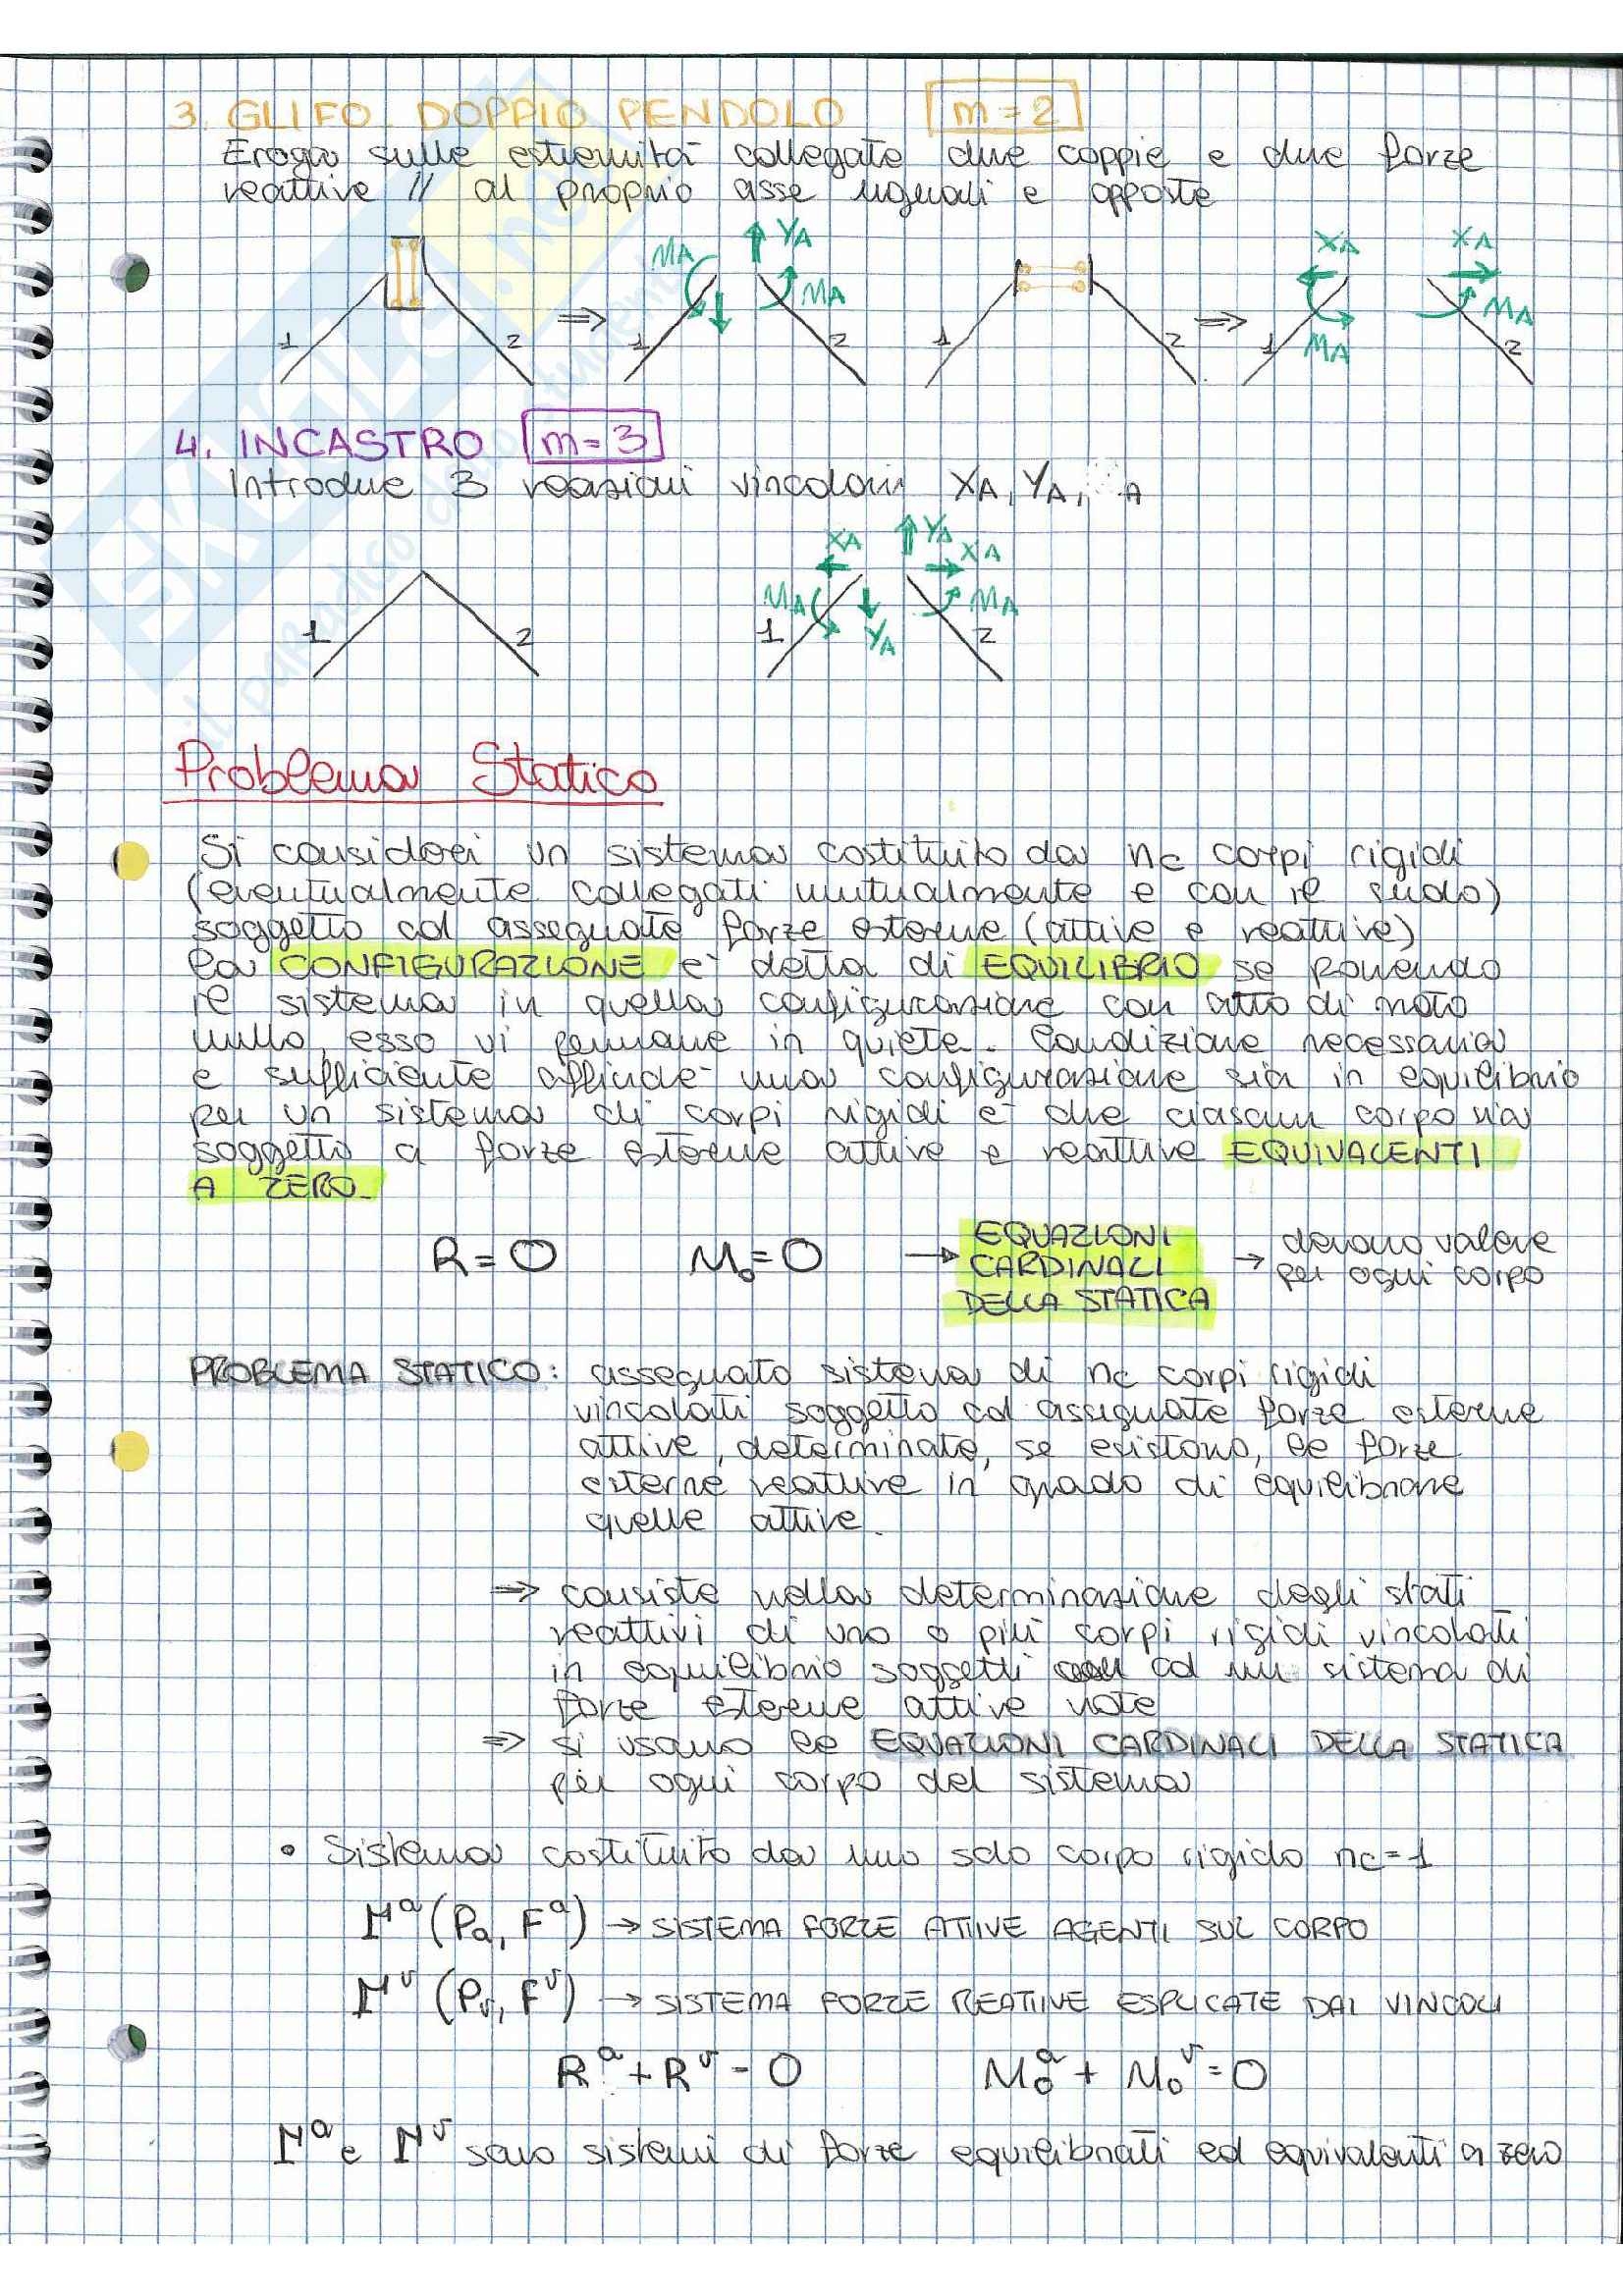 3. GLIFO DOPPIO PENDOLO m=2
Eroga sulle estremità collegate due coppie e due forze
reattive // al proprio asse uguali e opposte
MA YA MA XA XA
1 2 ⇒ 1 2 MA 1 2 ⇒ 1 MA 2 MA
4. INCASTRO m=3
Introduce 3 reazioni vincolari XA, YA, A
XA YA XA
MA MA
1 2 1 YA 2
Problema Statico
Si consideri un sistema costituito da nc corpi rigidi
(eventualmente collegati mutualmente e con il suolo)
soggetto ad assegnate forze esterne (attive e reattive)
la CONFIGURAZIONE è detta di EQUILIBRIO se ponendo
il sistema in quella configurazione con atto di moto
nullo, esso vi permane in quiete. Condizione necessaria
e sufficiente affinché una configurazione sia in equilibrio
per un sistema di corpi rigidi è che ciascun corpo sia
soggetto a forze esterne attive e reattive EQUIVALENTI
A ZERO.
R=0 Mo=0 → EQUAZIONI CARDINALI DELLA STATICA → devono valere per ogni corpo
PROBLEMA STATICO: assegnato sistema di nc corpi rigidi
vincolati soggetto ad assegnate forze esterne
attive, determinate, se esistono, le forze
esterne reattive in grado di equilibrare
quelle attive.
⇒ consiste nella determinazione degli stati
reattivi di uno o più corpi rigidi vincolati
in equilibrio soggetti ad un sistema di
forze esterne attive note
⇒ si usano le EQUAZIONI CARDINALI DELLA STATICA
per ogni corpo del sistema
• Sistema costituito da uno solo corpo rigido nc=1
(Pa, Fᵃ) → SISTEMA FORZE ATTIVE AGENTI SUL CORPO
(Pv, Fᵛ) → SISTEMA FORZE REATTIVE ESPLICATE DAI VINCOLI
Rᵃ + Rᵛ = 0 Moᵃ + Moᵛ = 0
e sono sistemi di forze equilibrati ed equivalenti a zero
SKUOLA.net
il paradiso dello studente